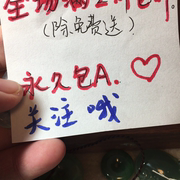 全场满2件包邮
（除免费送）
永久包A. ♡
关注哦